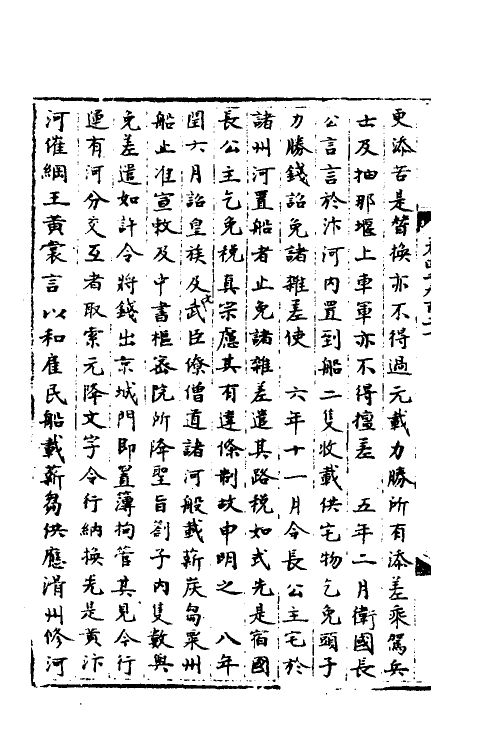 更添若是替換亦不得過元載力勝所有添差乘駕兵
士及抽那堰上車軍亦不得擅差　五年二月衛國長
公言言於汴河內置到船二隻收載供宅物乞免頭子
力勝錢詔免諸雜差使　六年十一月令長公主宅於
諸州河置船者止免諸雜差遣其路稅如式先是宿國
長公主乞免稅真宗慮其有違條制故申明之　八年
閏六月詔皇族及文武臣僚僧道諸河般載薪炭芻粟州
船止准宣敕及中書樞密院所降聖旨劄子內隻數與
免差遣如許令將錢出京城門即置簿拘管其見今行
運有河分交互者取索元降文字令行納換先是黃汴
河催綱王黃裳言以和雇民船載薪芻供應滑州修河